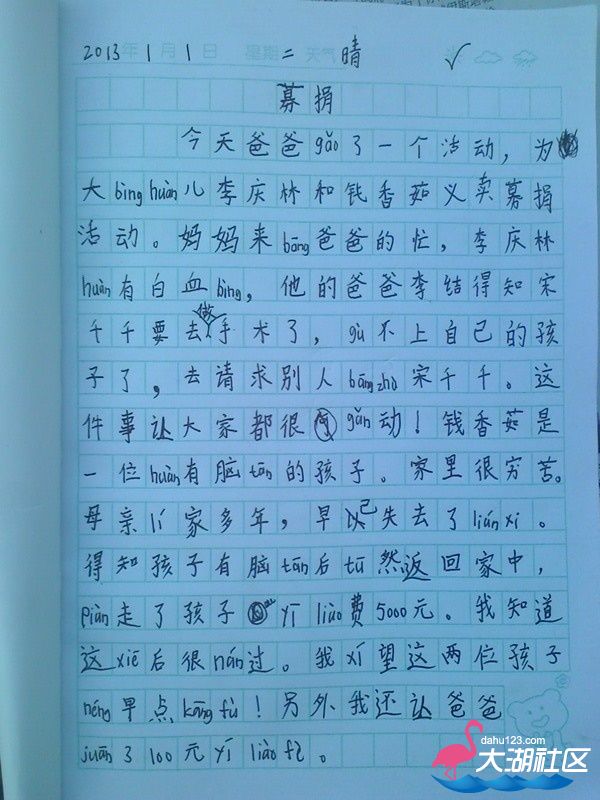 2013年1月1日 星期二 天气晴
募捐
今天爸爸gǎo了一个活动，为
大bìng huàn儿李庆林和钱香茹义卖募捐
活动。妈妈来bāng爸爸的忙，李庆林
huàn有白血bìng，他的爸爸李结得知宋
千千要去做手术了，gù不上自己的孩
子了，去请求别人bāng zhù宋千千。这
件事让大家都很gǎn动！钱香茹是
一位huàn有脑tān的孩子。家里很穷苦。
母亲lí家多年，早已失去了lián xì。
得知孩子有脑tān后tū然返回家中，
piàn走了孩子yī liáo费5000元。我知道
这xiē后很nán过。我xī望这两位孩子
néng早点kāng fù！另外我还让爸爸
juān了100元yī liáo fèi。
dahu123.com
大湖社区